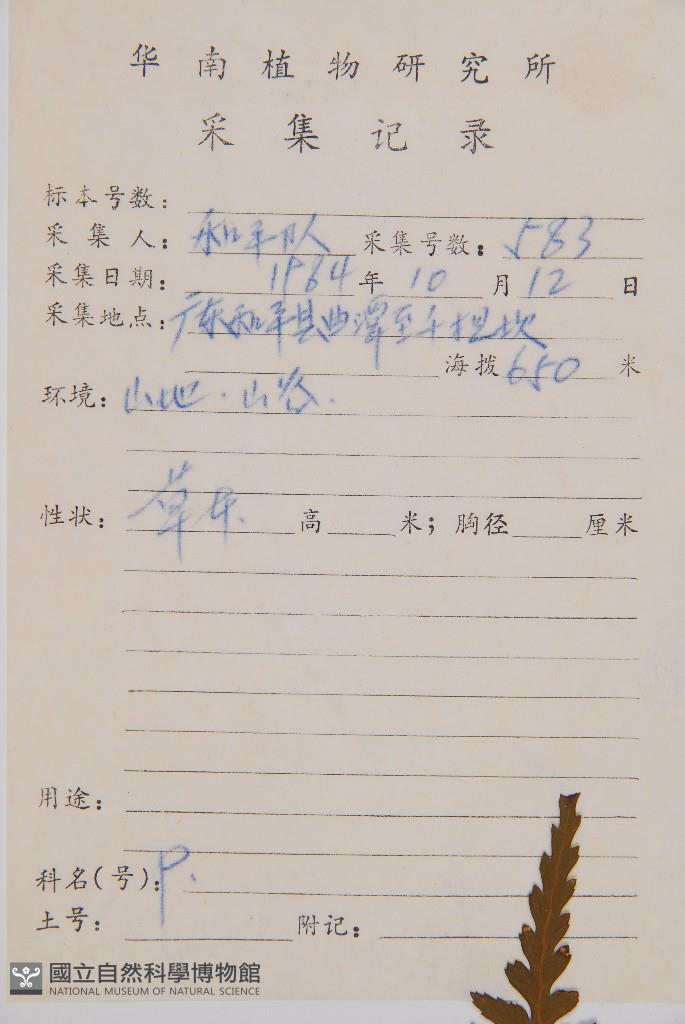 华南植物研究所
采集记录
标本号数：
采集人：和平队 采集号数：583
采集日期：1964年10月12日
采集地点：广东和平县曲潭至千担坎
海拨650米
环境：山地.山谷.
性状：草本. 高 米；胸径 厘米
用途：
科名(号)：P.
土号： 附记：
國立自然科學博物館
NATIONAL MUSEUM OF NATURAL SCIENCE